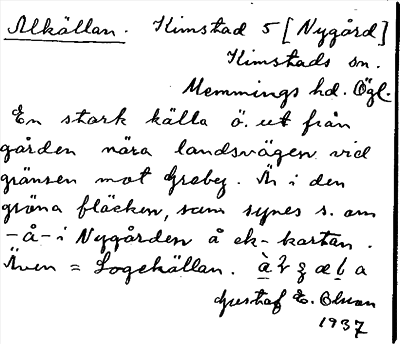 Alkällan. Kimstad 5 [Nygård]
Kimstads sn.
Memmings hd. Ögl.
En stark källa ö. ut från
gården nära landsvägen vid
gränsen mot Grebeg. Är i den
gröna fläcken, som synes s. om
-å- i Nygården å ek-kartan.
Även = Logekällan.
Gustaf E. Olsson
1937